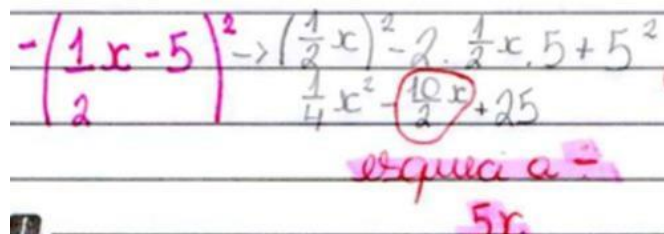 -(1/2 x - 5)² -> (1/2 x)² - 2 . 1/2 x . 5 + 5²
1/4 x² - 10/2 x + 25
esqueci a -
5x